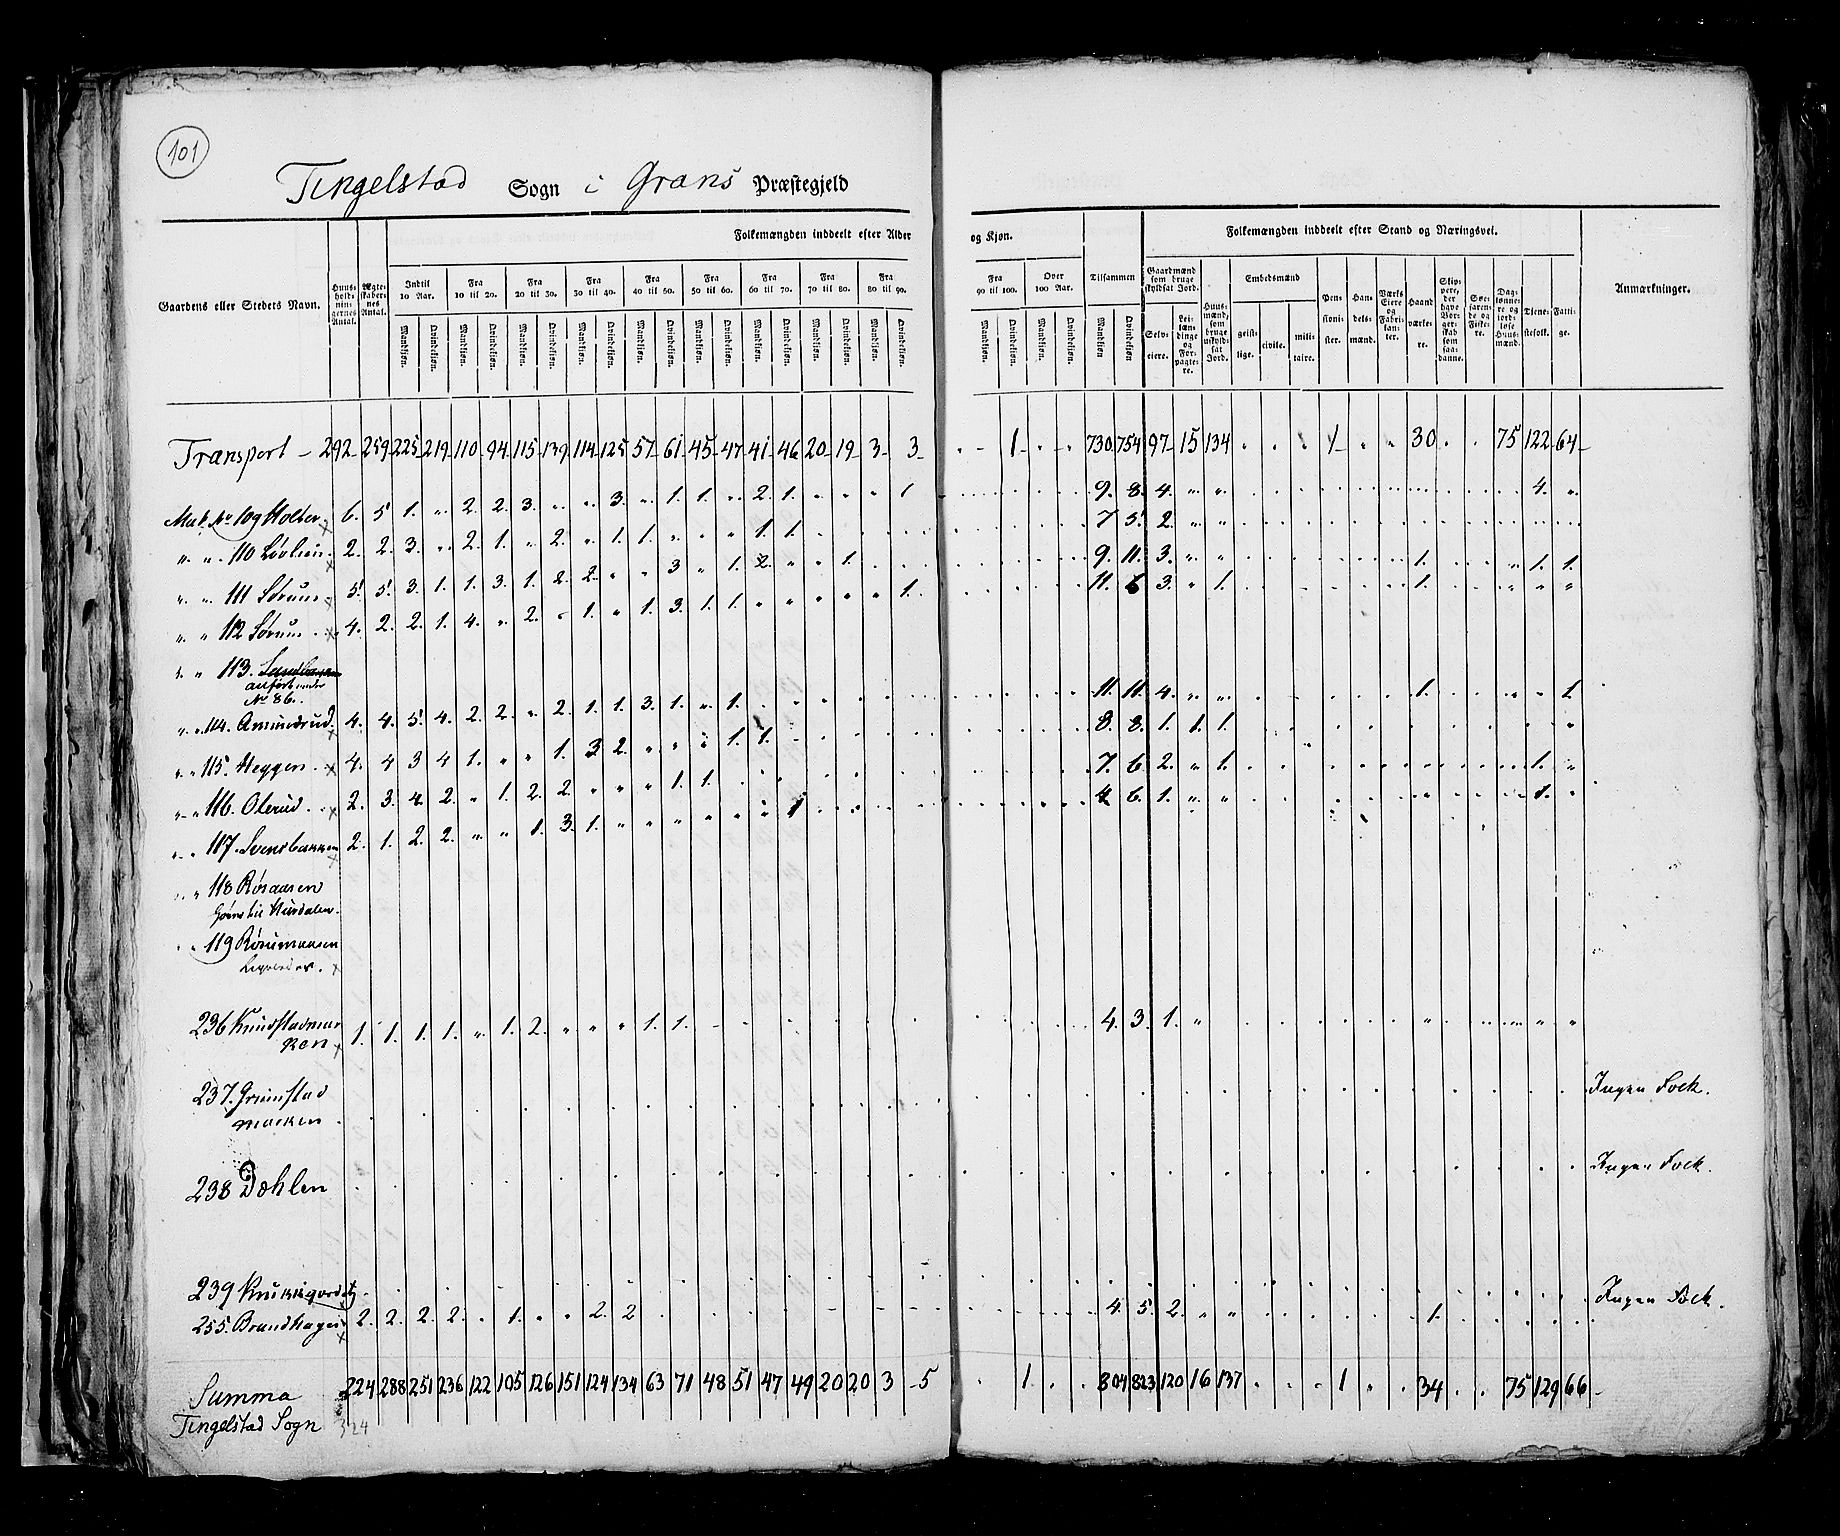 101
Tingelstad Sogn i Grans Præstegjeld
Folkemængden inddeelt efter Alder og Kjøn. Folkemængden inddeelt efter Stand og Næringsvei.
Gaardens eller Stedets Navn. Huusholdningernes Antal. Ægteskabernes Antal. Indtil 10 Aar. Fra 10 til 20. Fra 20 til 30. Fra 30 til 40. Fra 40 til 50. Fra 50 til 60. Fra 60 til 70. Fra 70 til 80. Fra 80 til 90. Fra 90 til 100. Over 100 Aar. Tilsammen Gaardmænd som bruge skyldsat Jord. Selveiere. Leilændinge og Forpagtere. Huusmænd, som bruge uskyldsat Jord. Embedsmænd geistlige. civile. militaire. Pensionister. Handelsmænd. Værks Eiere og Fabrikanter. Haandværkere. Skippere, der have Borgerskab som saadanne. Søefarende og Fiskere. Daglønnere og jordløse Huusmænd. Tjenestefolk. Fattige. Anmærkninger.
Mandkjøn. Qvindekjøn. Mandkjøn. Qvindekjøn. Mandkjøn. Qvindekjøn. Mandkjøn. Qvindekjøn. Mandkjøn. Qvindekjøn. Mandkjøn. Qvindekjøn. Mandkjøn. Qvindekjøn. Mandkjøn. Qvindekjøn. Mandkjøn. Qvindekjøn. Mandkjøn. Qvindekjøn. Mandkjøn. Qvindekjøn. Mandkjøn Qvindekjøn
Transport - 292 259 225 219 110 94 115 139 114 125 57 61 45 47 41 46 20 19 3 3 . - 1 . . 730 754 97 15 134 . . . 1 . . 30 . . 75 122 64
Mat. No 109 Holter 6. 5 1. " 2. 2. 3. " " 3. " 1. 1. " 2. 1. " " " 1 9. 8. 4. " " 4. "
" " 110 Løvlien 2. 2. 3. " 2. 1. " 2. " 1. 1. " " " 1. 1. 7 5. 2. " "
" " 111 Sørum 5. 5. 3. 1. 1. 3. 1. 2. 2. " " 3 " 1. 2. " " 1. 9. 11. 3. " " 1. " 1. 1.
" " 112 Sørum 4. 2. 2. 1. 4. " 2. " 1. " 1. 3. 1. 1. " " " " " 1. 11. 6 3. " 1. 1. " " "
" " 113.
anført under
No 86.
" " 114. Amundrud 4. 4. 5. 4. 2. 2. " 2. 1. 1. 3. 1. " 1. 11. 11. 4. " " 1. " 1.
" " 115. Heggen 4. 4 3 4 1. " " 1. 3 2. " " " 1. 1. 8. 8. 1. 1. 1.
" " 116. Olerud 2. 3. 4. 2. " 1. 2. 2. " " " 1. 1. 7. 6. 2. " 1. 1. "
" " 117. Svensbakken 2. 1. 2. 2. " " 1. 3. 1. " " " " " " 1 4 6. 1. " " 1.
" " 118 Røsaasen
Hurdalen.
" " 119
236 Knudstadmar
ken 1. 1. 1. 1. " 1. 2. " " " 1. 1. 4. 3. 1. "
237. Grimstad
marken Ingen Folk.
238 Dæhlen Ingen Folk.
239 Ingen Folk.
255. Brandhagen 2. 2. 2. 2. " 1. " " 2. 2 4. 5. 2. " " 1.
Summa 224 288 251 236 122 105 126 151 124 134 63 71 48 51 47 49 20 20 3 5 . 1. . . 804 823 120 16 137 . . . 1 . . 34 . . 75 129 66
Tingelstad Sogn 324